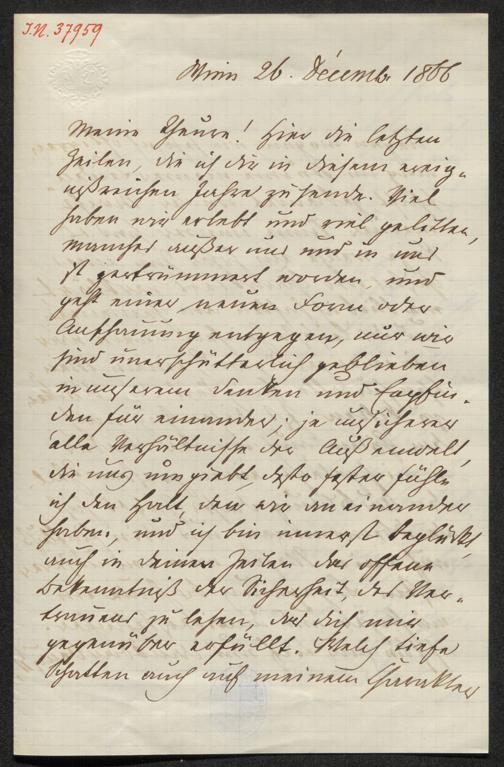 I.N. 37959
Wien 26. Décemb. 1866
Meine Theure! Hier die letzten
Zeilen, die ich dir in diesem ereig-
nißreichen Jahre zusende. Viel
haben wir erlebt und viel gelitten,
manches außer uns und in uns
ist zertrümmert worden, und
geht einer neuen Form oder
Anschauung entgegen, nur wir
sind unerschütterlich geblieben
in unserem Denken und Empfin-
den für einander; je unsicherer
alle Verhältnisse der Außenwelt,
die uns umgiebt, desto fester fühle
ich den Halt, den wir an einander
haben, und ich bin innerst beglückt
auch in deinen Zeilen das offene
Bekenntniß der Sicherheit, des Ver-
trauens zu lesen, das dich mir
gegenüber erfüllt. Welch tiefe
Schatten auch auf meinem Charakter